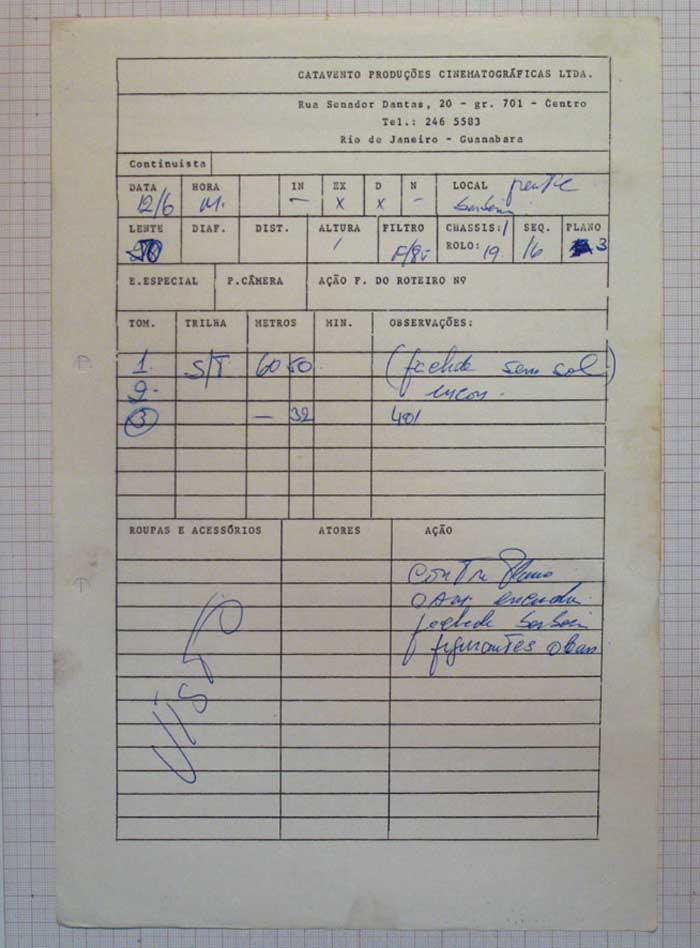 CATAVENTO PRODUÇÕES CINEMATOGRÁFICAS LTDA.
Rua Senador Dantas, 20 - gr. 701 - Centro
Tel.: 246 5583
Rio de Janeiro - Guanabara
Continuista
DATA HORA IN EX D N LOCAL
12/6 M. - X X -
LENTE DIAF. DIST. ALTURA FILTRO CHASSIS: 1 SEQ. PLANO
ROLO: 19 16 3
E.ESPECIAL P.CÂMERA AÇÃO F. DO ROTEIRO Nº
TOM. TRILHA METROS MIN. OBSERVAÇÕES:
1. S/T 60 50 (fachada sem sol)
2.
3 - 32 401
ROUPAS E ACESSÓRIOS ATORES AÇÃO
Contra Plano
fachada
figurantes olham
VISTO